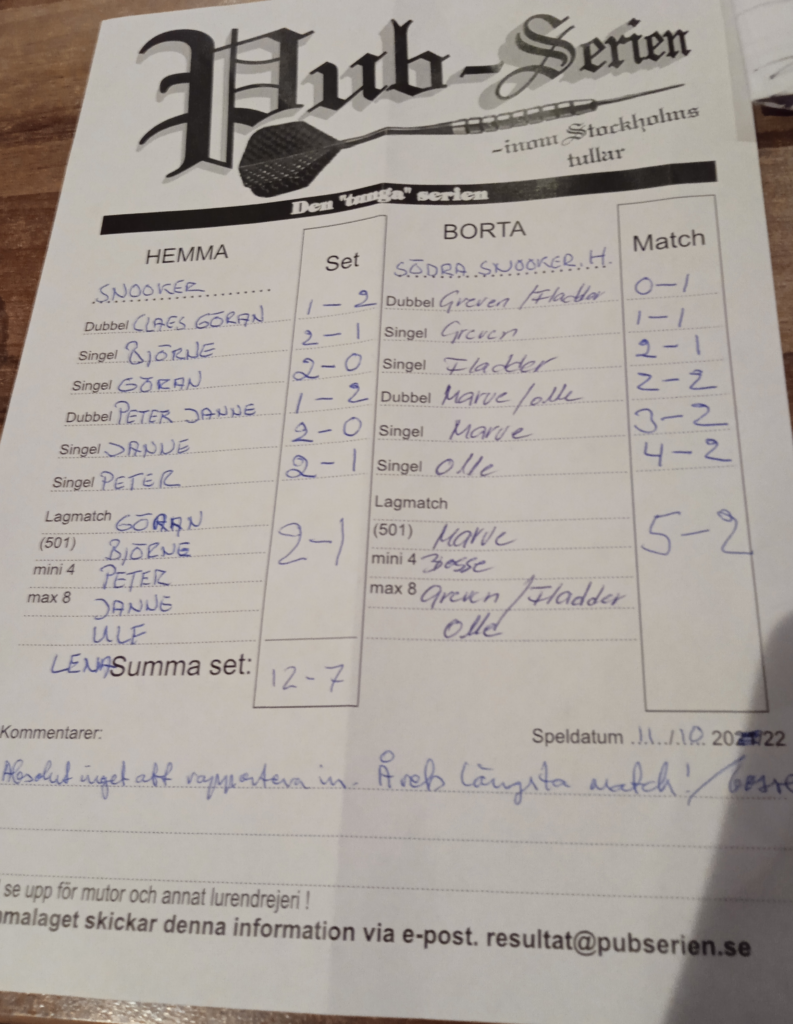 Pub-Serien
-inom Stockholms
tullar
Den "tunga" serien
HEMMA Set BORTA Match
SNOOKER SÖDRA SNOOKER.H.
Dubbel CLAES GÖRAN 1-2 Dubbel Greven/Fladder 0-1
Singel BJÖRNE 2-1 Singel Greven 1-1
Singel GÖRAN 2-0 Singel Fladder 2-1
Dubbel PETER JANNE 1-2 Dubbel Marve/olle 2-2
Singel JANNE 2-0 Singel Marve 3-2
Singel PETER 2-1 Singel Olle 4-2
Lagmatch GÖRAN Lagmatch
(501) BJÖRNE 2-1 (501) Marve 5-2
mini 4 PETER mini 4 Bosse
max 8 JANNE max 8 Greven/Fladder
ULF Olle
LENA Summa set: 12-7
Kommentarer: Speldatum 11/10 2022
Absolut inget att rapportera in. Årets längsta match! /Bosse
se upp för mutor och annat lurendrejeri !
malaget skickar denna information via e-post. resultat@pubserien.se